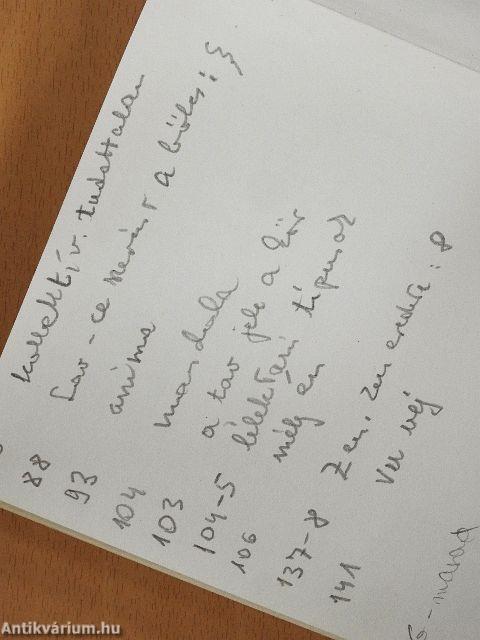 88 kollektív. tudattalan
93 Lao-ce a bölcs:
104 anima
103 mandala
104-5 a tao jele a kör
106 lélektani típusok
mély én
137-8 Zen, Zen eredete: 8
141 Vu vej
6-marad
Antikvárium.hu